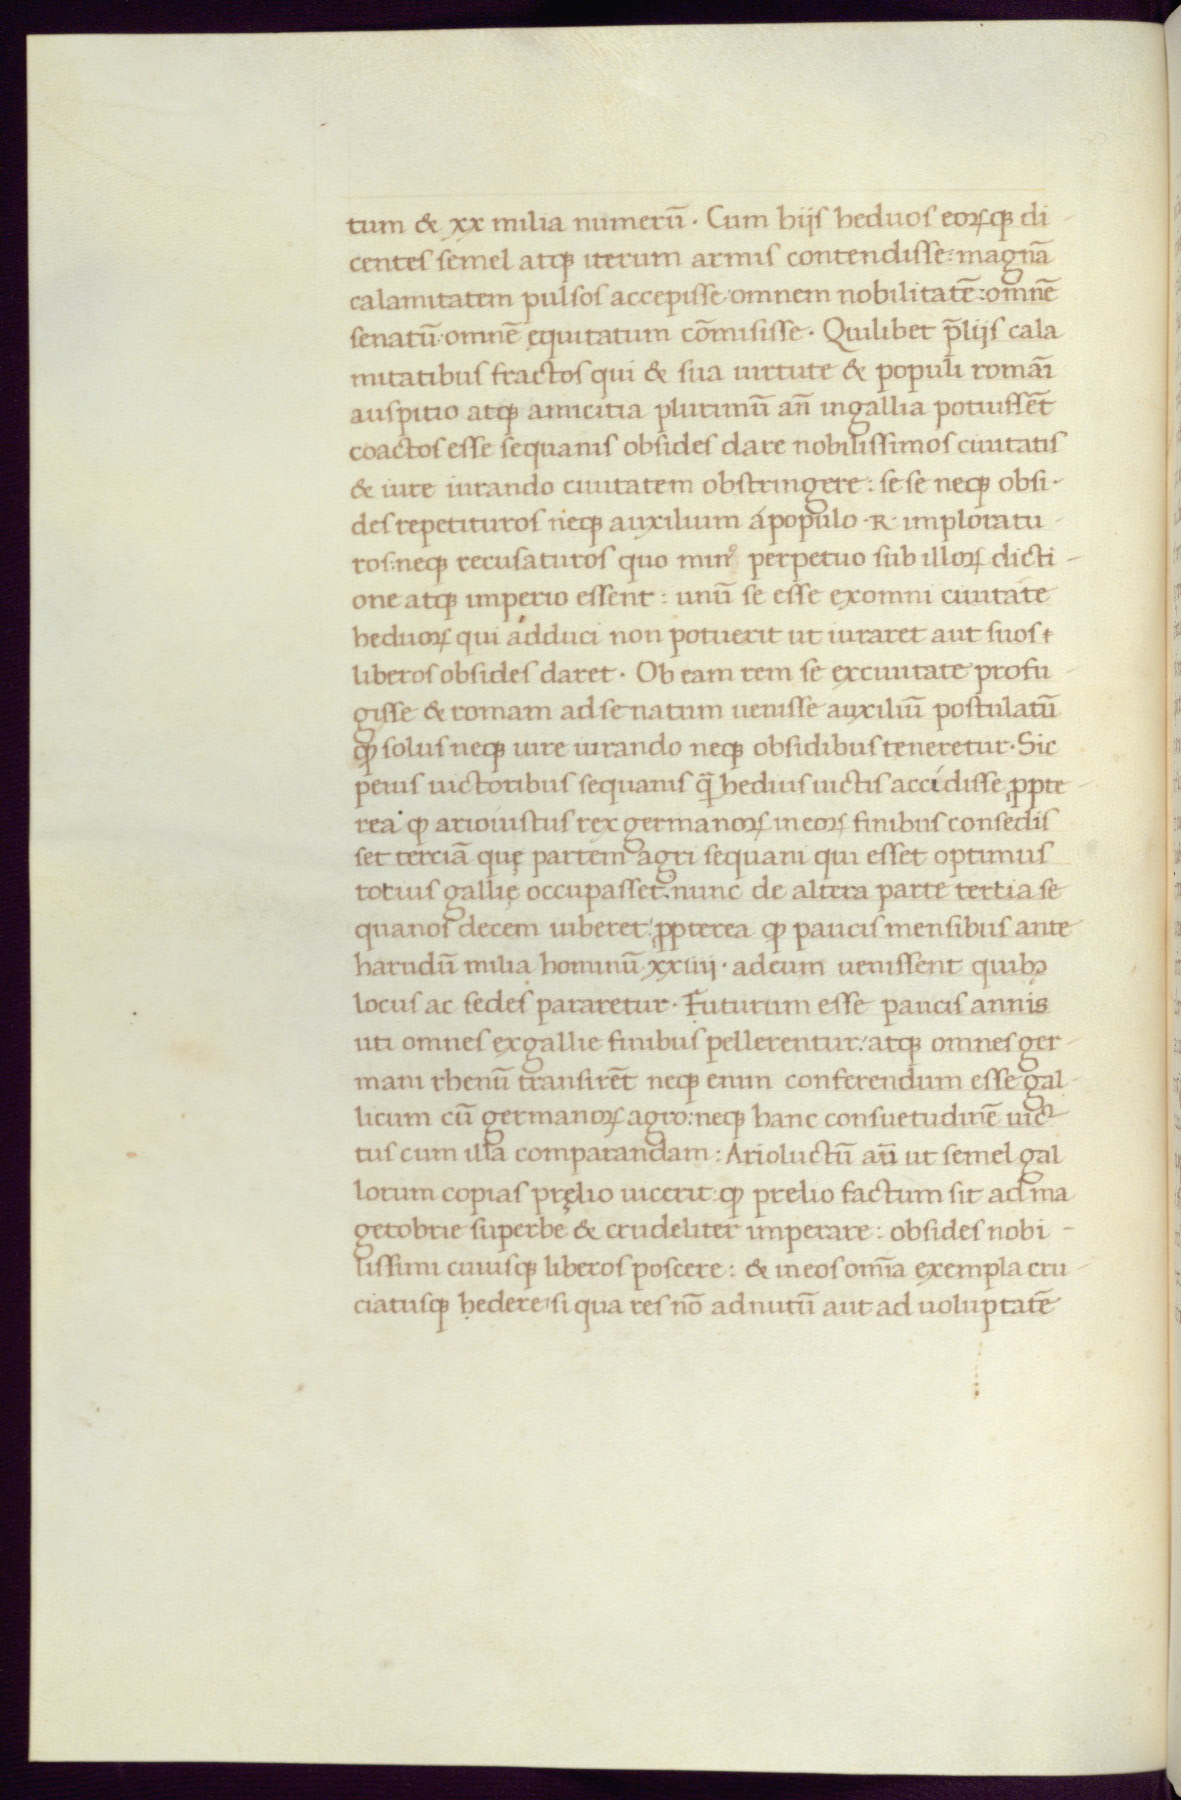 tum & xx milia numerū · Cum hijs heduos eoꝝqꝫ di-
centes semel atqꝫ iterum armis contendisse: magnā
calamitatem pulsos accepisse omnem nobilitatē: omnē
senatū omnē equitatum cōmisisse · Quilibet p̄lijs cala
mitatibus fractos qui & sua uirtute & populi romāi
auspitio atqꝫ amicitia plurimū an̄ ingallia potuissēt
coactos esse sequanis obsides dare nobilissimos ciuitatis
& iure iurando ciuitatem obstringere: se se neqꝫ obsi-
des repetituros neqꝫ auxilium ápopulo ·R· imploratu-
ros: neqꝫ recusaturos quo minꝰ perpetuo sub illoꝝ dicti-
one atqꝫ imperio essent: unū se esse exomni ciuitate
heduoꝝ qui adduci non potuerit ut iuraret aut suos
liberos obsides daret · Ob eam rem se exciuitate profu-
gisse & romam adsenatum uenisse auxiliū postulatū
qꝫ solus neqꝫ iure iurando neqꝫ obsidibus teneretur · Sic
peius uictoribus sequanis q̄ heduis uictis accidisse ꝓpte-
rea qꝫ ariouistus rex germanoꝝ ineoꝝ finibus consedis
set terciā quę partem agri sequani qui esset optimus
totius gallię occupasset. nunc de altera parte tertia se
quanos decem iuberet: ꝓpterea qꝫ paucis mensibus ante
harudū milia hominū xxiiij · adeum uenissent quibꝫ
locus ac sedes pararetur · Futurum esse paucis annis
uti omnes exgallie finibus pellerentur: atqꝫ omnes ger-
mani rhenū transirēt neqꝫ enim conferendum esse gal-
licum cū germanoꝝ agro: neqꝫ hanc consuetudinē uic-
tus cum illa comparandam: Arioluctū aūt ut semel gal
lorum copias pręlio uicerit: qꝫ prelio factum sit ad ma
getobrie superbe & crudeliter imperare: obsides nobi-
lissimi cuiusqꝫ liberos poscere: & ineos omīa exempla cru-
ciatusqꝫ hedere si qua res nō adnutū aut ad uoluptatē